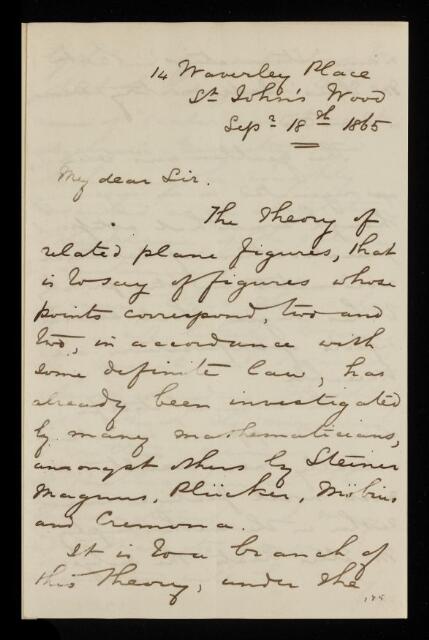 14 Waverley Place
St. John's Wood
Sepr. 18th 1865
My dear Sir.
The theory of
related plane figures, that
is to say of figures whose
points correspond, two and
two, in accordance with
some definite law, has
already been investigated
by many mathematicians,
amongst others by Steiner
Magnus, Plücker, Möbius
and Cremona.
It is to a branch of
this theory, under the